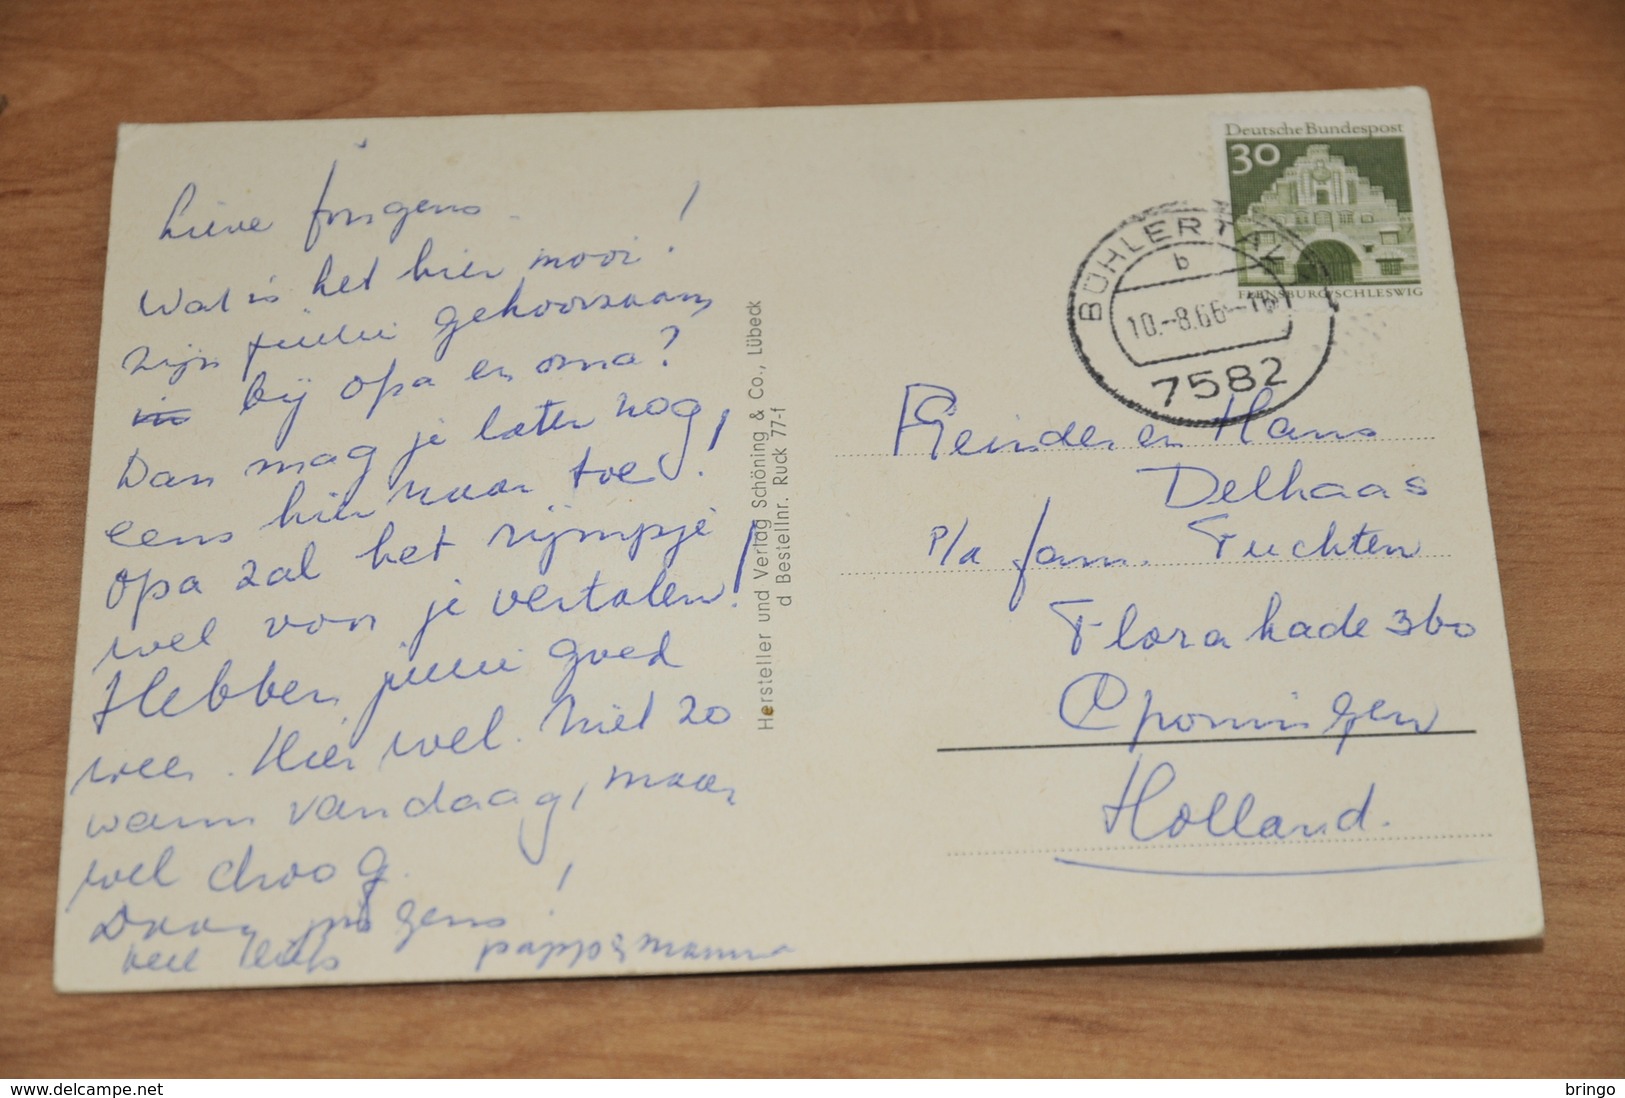 Lieve jongens.
Wat is het hier mooi!
Zijn jullie gehoorzaam
bij opa en oma?
Dan mag je later nog
eens hier naar toe!
Opa zal het rijmpje
wel voor je vertalen!
Hebben jullie goed
weer. Hier wel. Niet zo
warm vandaag, maar
wel droog.
Daag jongens!
veel liefs pappa & mamma
Hersteller und Verlag Schöning & Co., Lübeck
d Bestellnr. Rück 77-f
Deutsche Bundespost
30
FLENSBURG/SCHLESWIG
BÜHLERTAL
b
10.-8.66-16
7582
Reinder en Hans
Delhaas
p/a fam. Tuchten
Florakade 360
Groningen
Holland.
www.delcampe.net
bringo